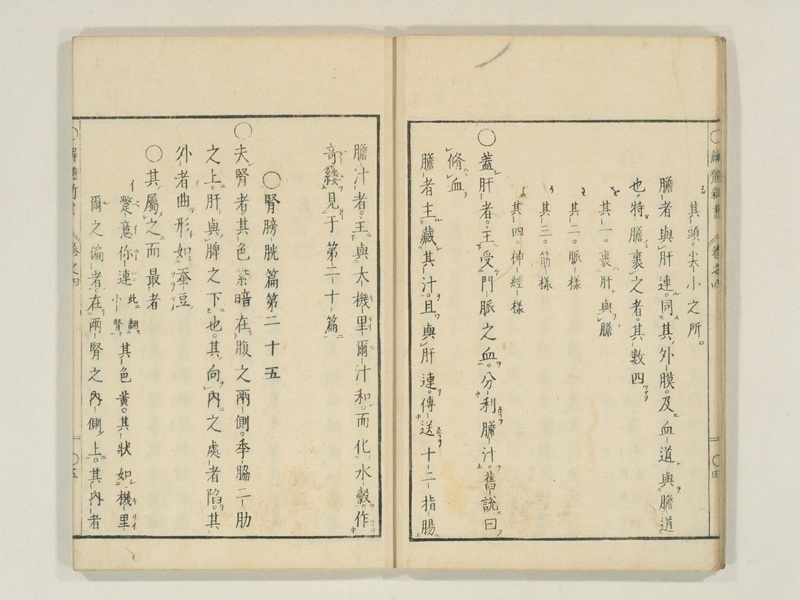 其頭尖小之所
膽者與肝連。同其外膜。及血道與膽道
也。特膽裹之者。其數四
其一。裹肝與膽
其二。脈樣
其三。筋樣
其四。神經樣
○蓋肝者。主受門脈之血。分利膽汁。舊說曰
脩血
膽者主藏其汁。且與肝連。傳送十二指腸
膽汁者。主與大機里爾汁和。而化水穀。作
奇縷。見于第二十篇
○腎膀胱篇第二十五
○夫腎者。其色紫暗。在腹之兩側。季脇二肋
之上。肝與脾之下也。其向內之處者陷。其
外者曲。形如蚕豆
○其屬之而最者
蹩意你連 此翻小腎 其色黃。其狀如機里
爾之偏者。在兩腎之內側上。其內者
卷之四
〇五